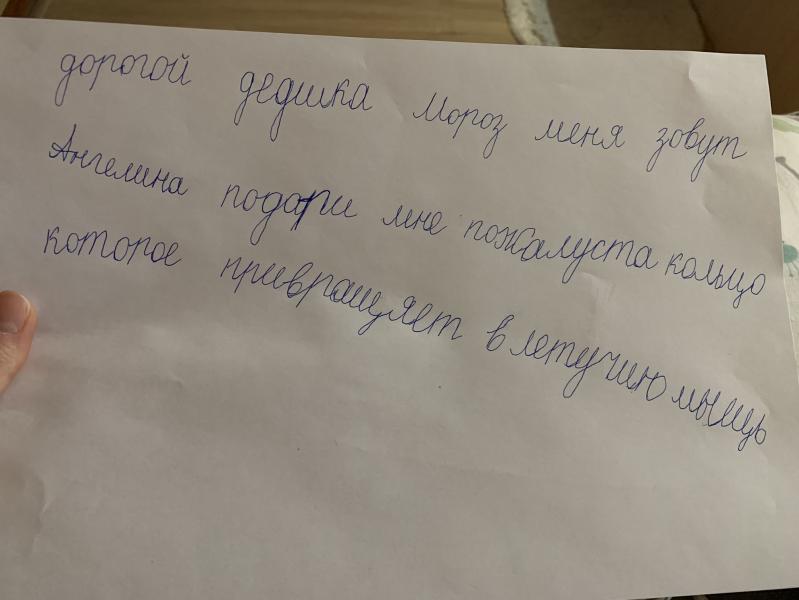 дорогой дедшка Мороз меня зовут
Ангелина подари мне пожалуста кольцо
которое привращяет в летучию мыщь